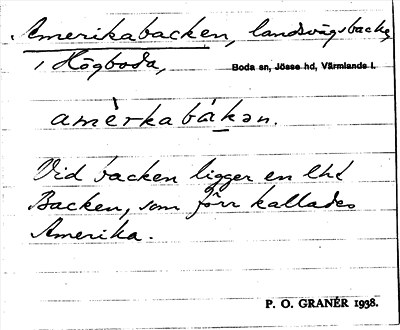 Amerikabacken, landsvägsbacke
i Högboda, Boda sn, Jösse hd, Värmlands l.
amèrkabákən.
Vid backen ligger en lht
Backen, som förr kallades
Amerika.
P. O. GRANÉR 1938.